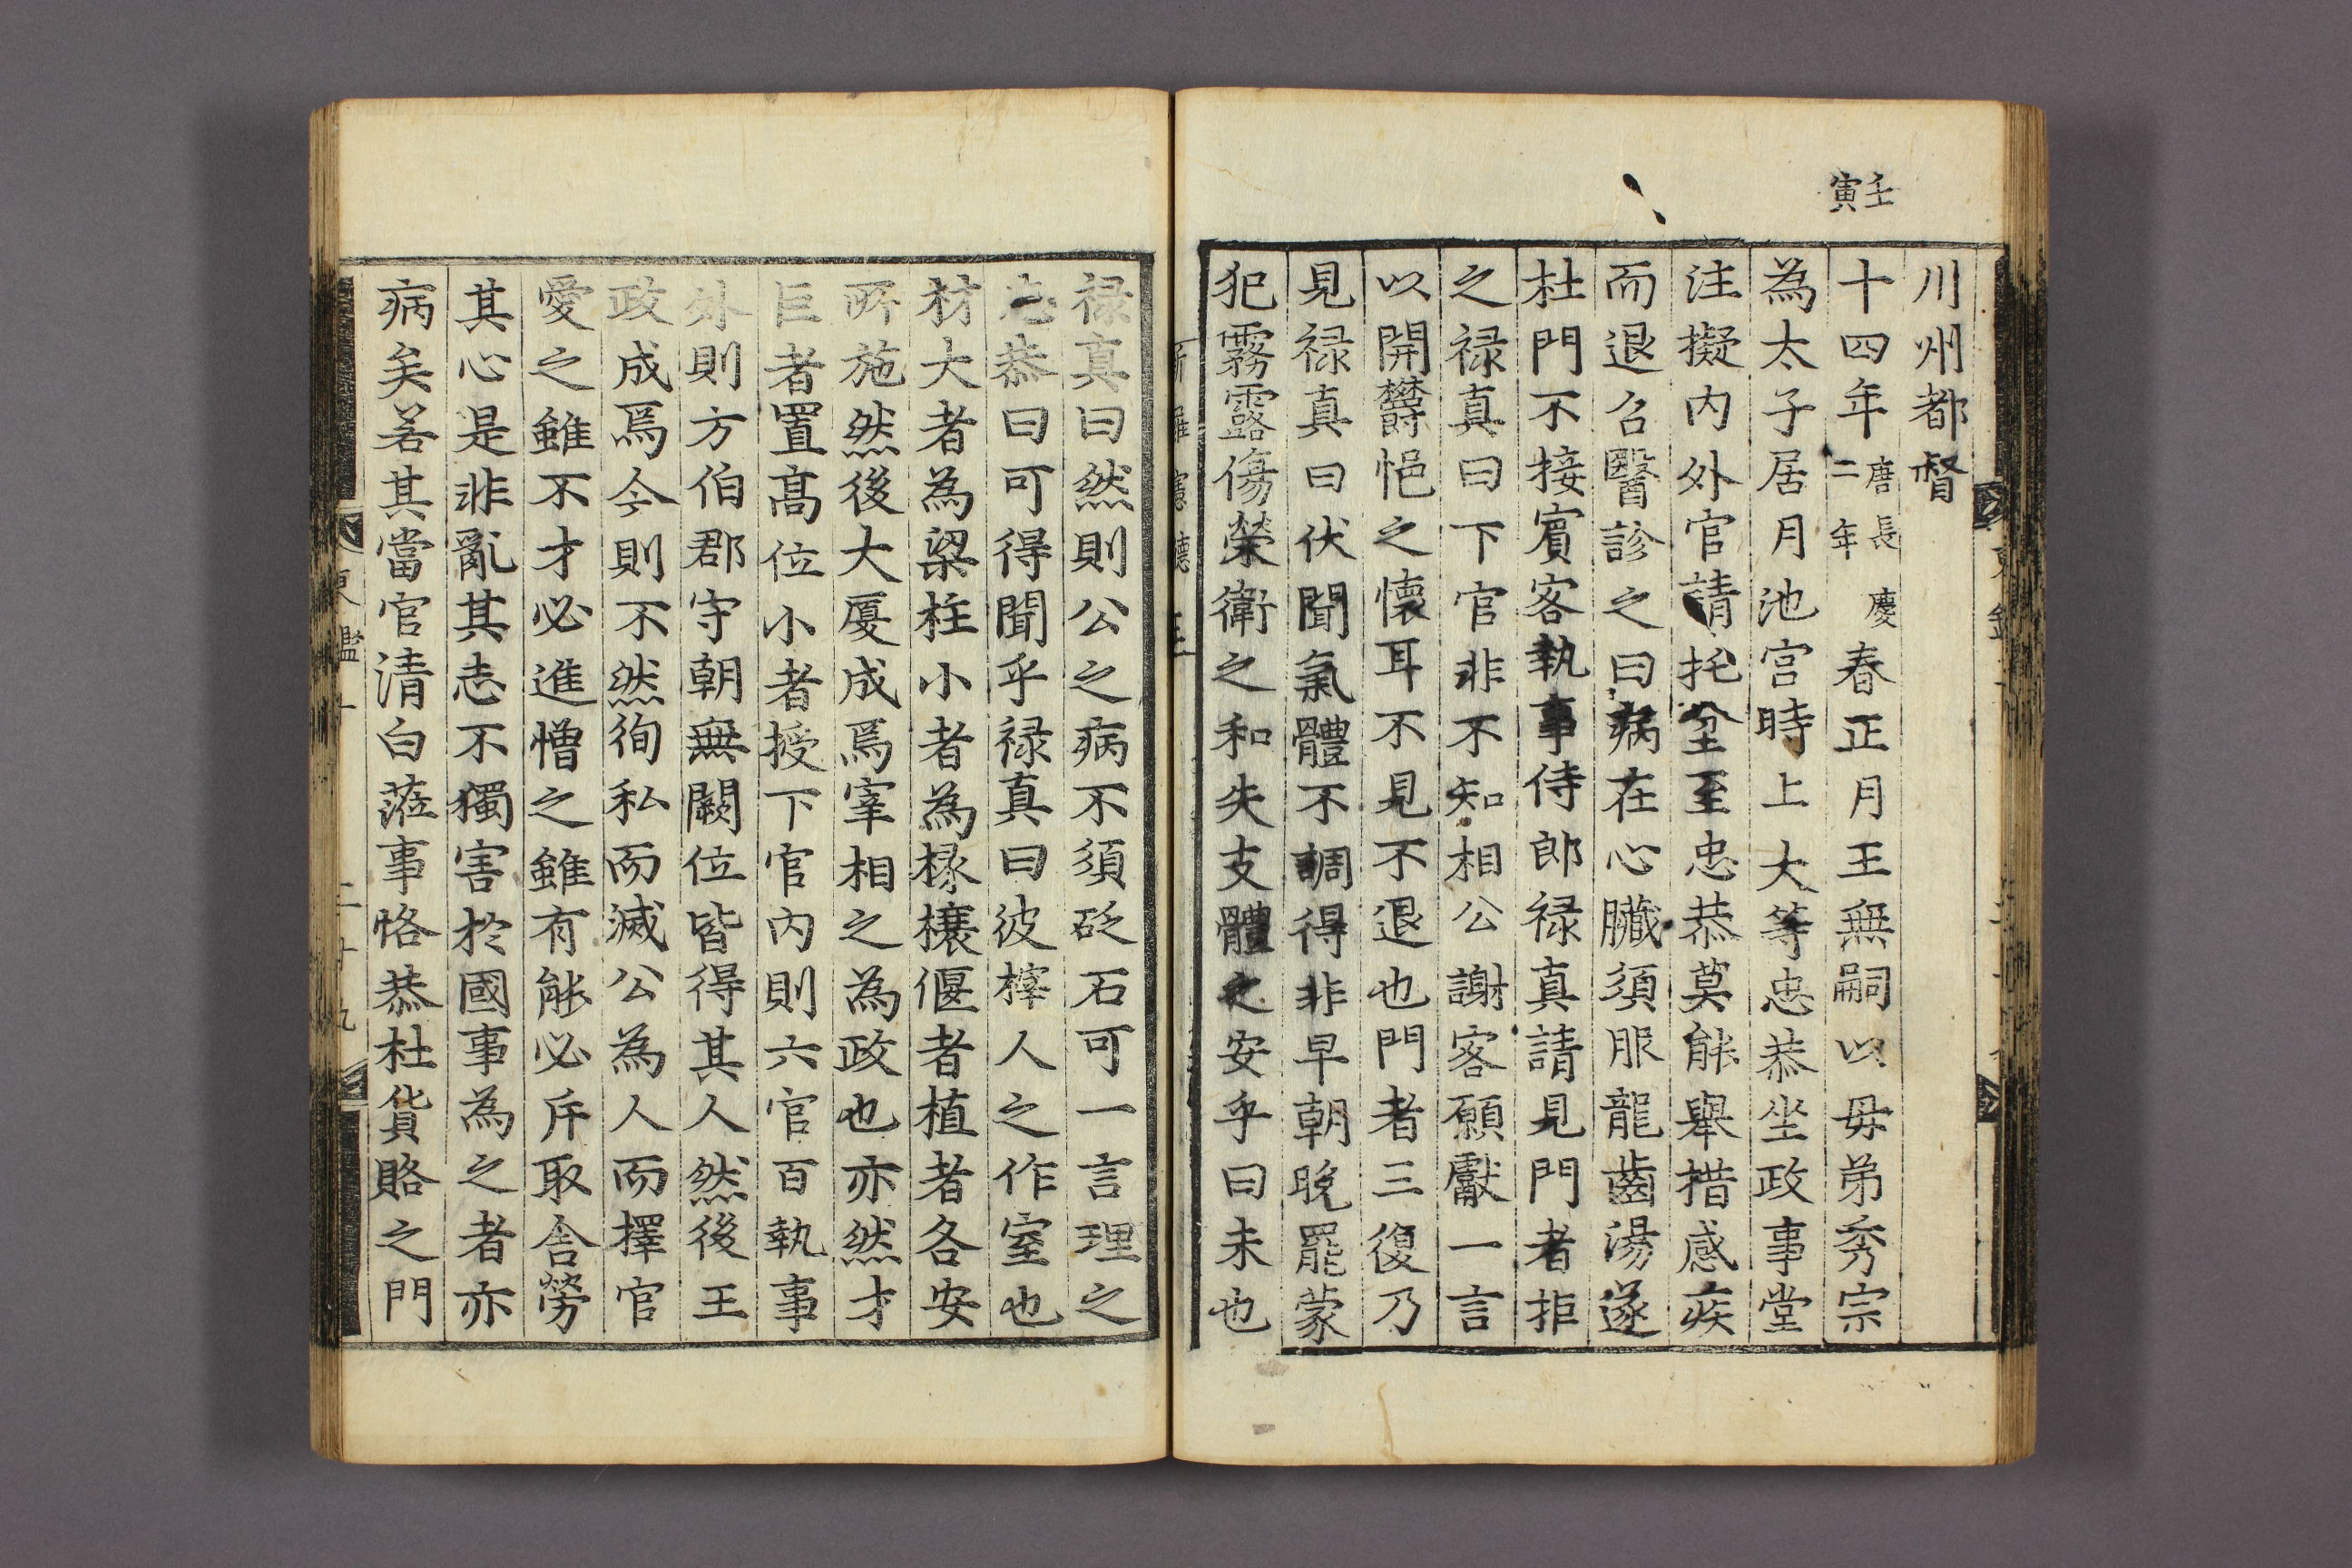 壬寅
川州都督
十四年唐長慶二年春正月王無嗣以毋弟秀宗
為太子居月池宮時上大等忠恭坐政事堂
注擬內外官請托坌至忠恭莫能舉措感疾
而退召醫診之曰病在心臟須服龍齒湯遂
杜門不接賓客執事侍郎祿真請見門者拒
之祿真曰下官非不知相公謝客願獻一言
以開欝悒之懷耳不見不退也門者三復乃
見祿真曰伏聞氣體不調得非早朝晚罷蒙
犯霧露傷榮衛之和失支體之安乎曰未也
新羅憲德王
祿真曰然則公之病不須砭石可一言理之
忠恭曰可得聞乎祿真曰彼梓人之作室也
材大者為梁柱小者為椽欀偃者植者各安
所施然後大廈成焉宰相之為政也亦然才
巨者置高位小者授下官內則六官百執事
外則方伯郡守朝無闕位皆得其人然後王
政成焉今則不然徇私而滅公為人而擇官
愛之雖不才必進憎之雖有能必斥取舍勞
其心是非亂其志不獨害於國事為之者亦
病矣若其當官清白蒞事恪恭杜貨賂之門
東鑑十
二十九